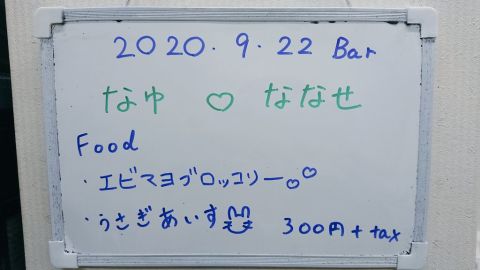 2020.9.22 Bar
なゆ ♡ ななせ
Food
・エビマヨブロッコリー
・うさぎあいす 300円+tax